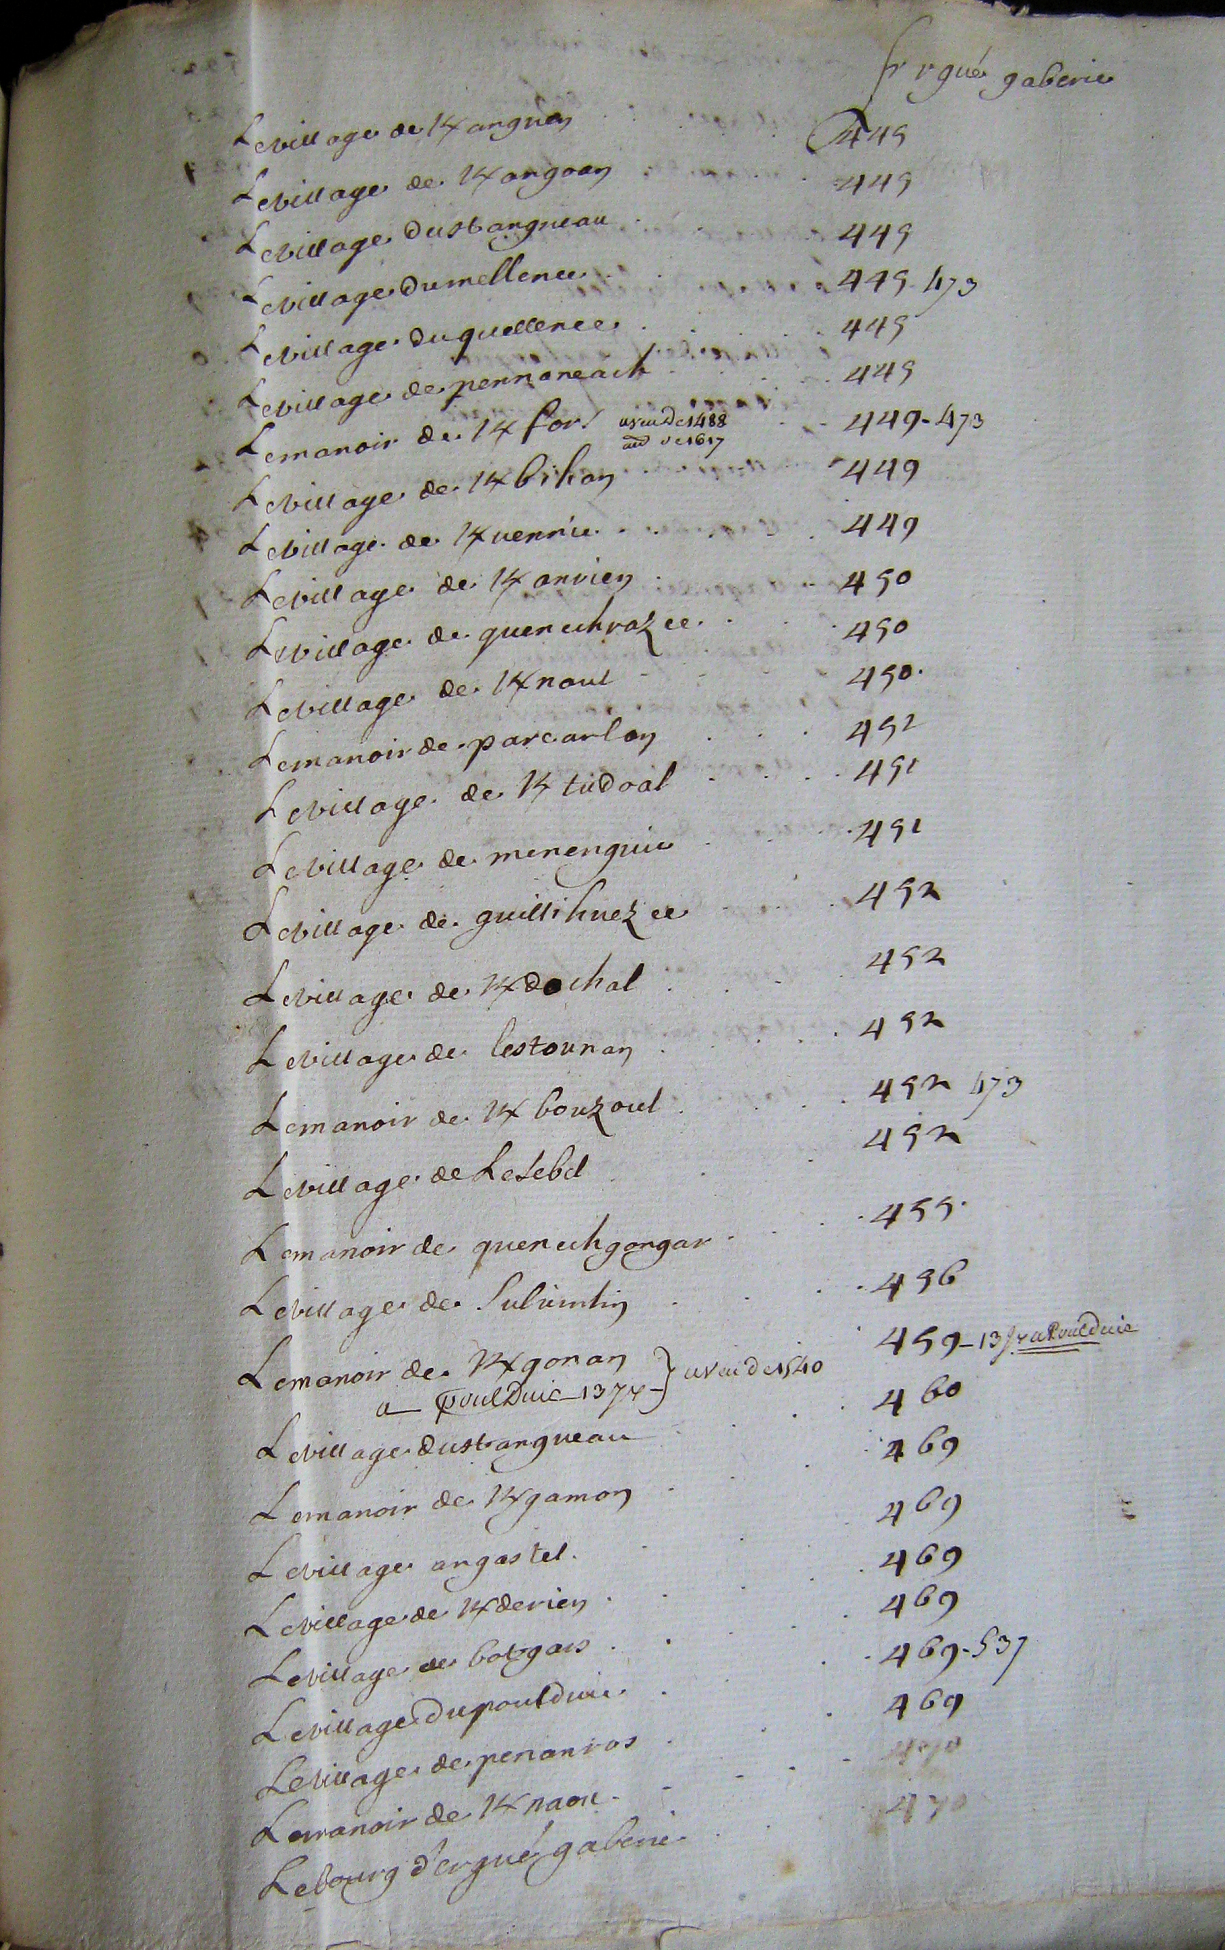 Ergué gaberic
Le village de K/anguen 449
Le village de K/angoan 449
Le village du stangueau 449
Le village du mellenec 449. 473
Le village du quellenec 449
Le village de penmaneach 449
Le manoir de K/fors aveu de 1488 449-473
aud de 1617
Le village de K/bihan 449
Le village de K/vennic 449
Le village de K/anvien 450
Le village de quenechrazec 450
Le village de K/naut 450.
Le manoir de parcarlan 451
Le village de K/tudoal 451
Le village de menenguic 451
Le village de guillihuezec 452
Le village de K/dochal 452
Le village de lestonnan 452
Le manoir de K/bouzoul 452 473
Le village de Lesebel 452
Le manoir de quenechgongar 455.
Le village de Sulvintin 456
Le manoir de K/gonan } aveu de 1540 459-137 a poulduic
a poulduic 137
Le village du stangueau 460
Le manoir de K/gamon 469
Le village an gastel. 469
Le village de K/derien 469
Le village de botgars 469
Le village du poulduic 469-537
Le village de penanros 469
Le manoir de K/naou 470
Le bourg d'ergué gaberic 470